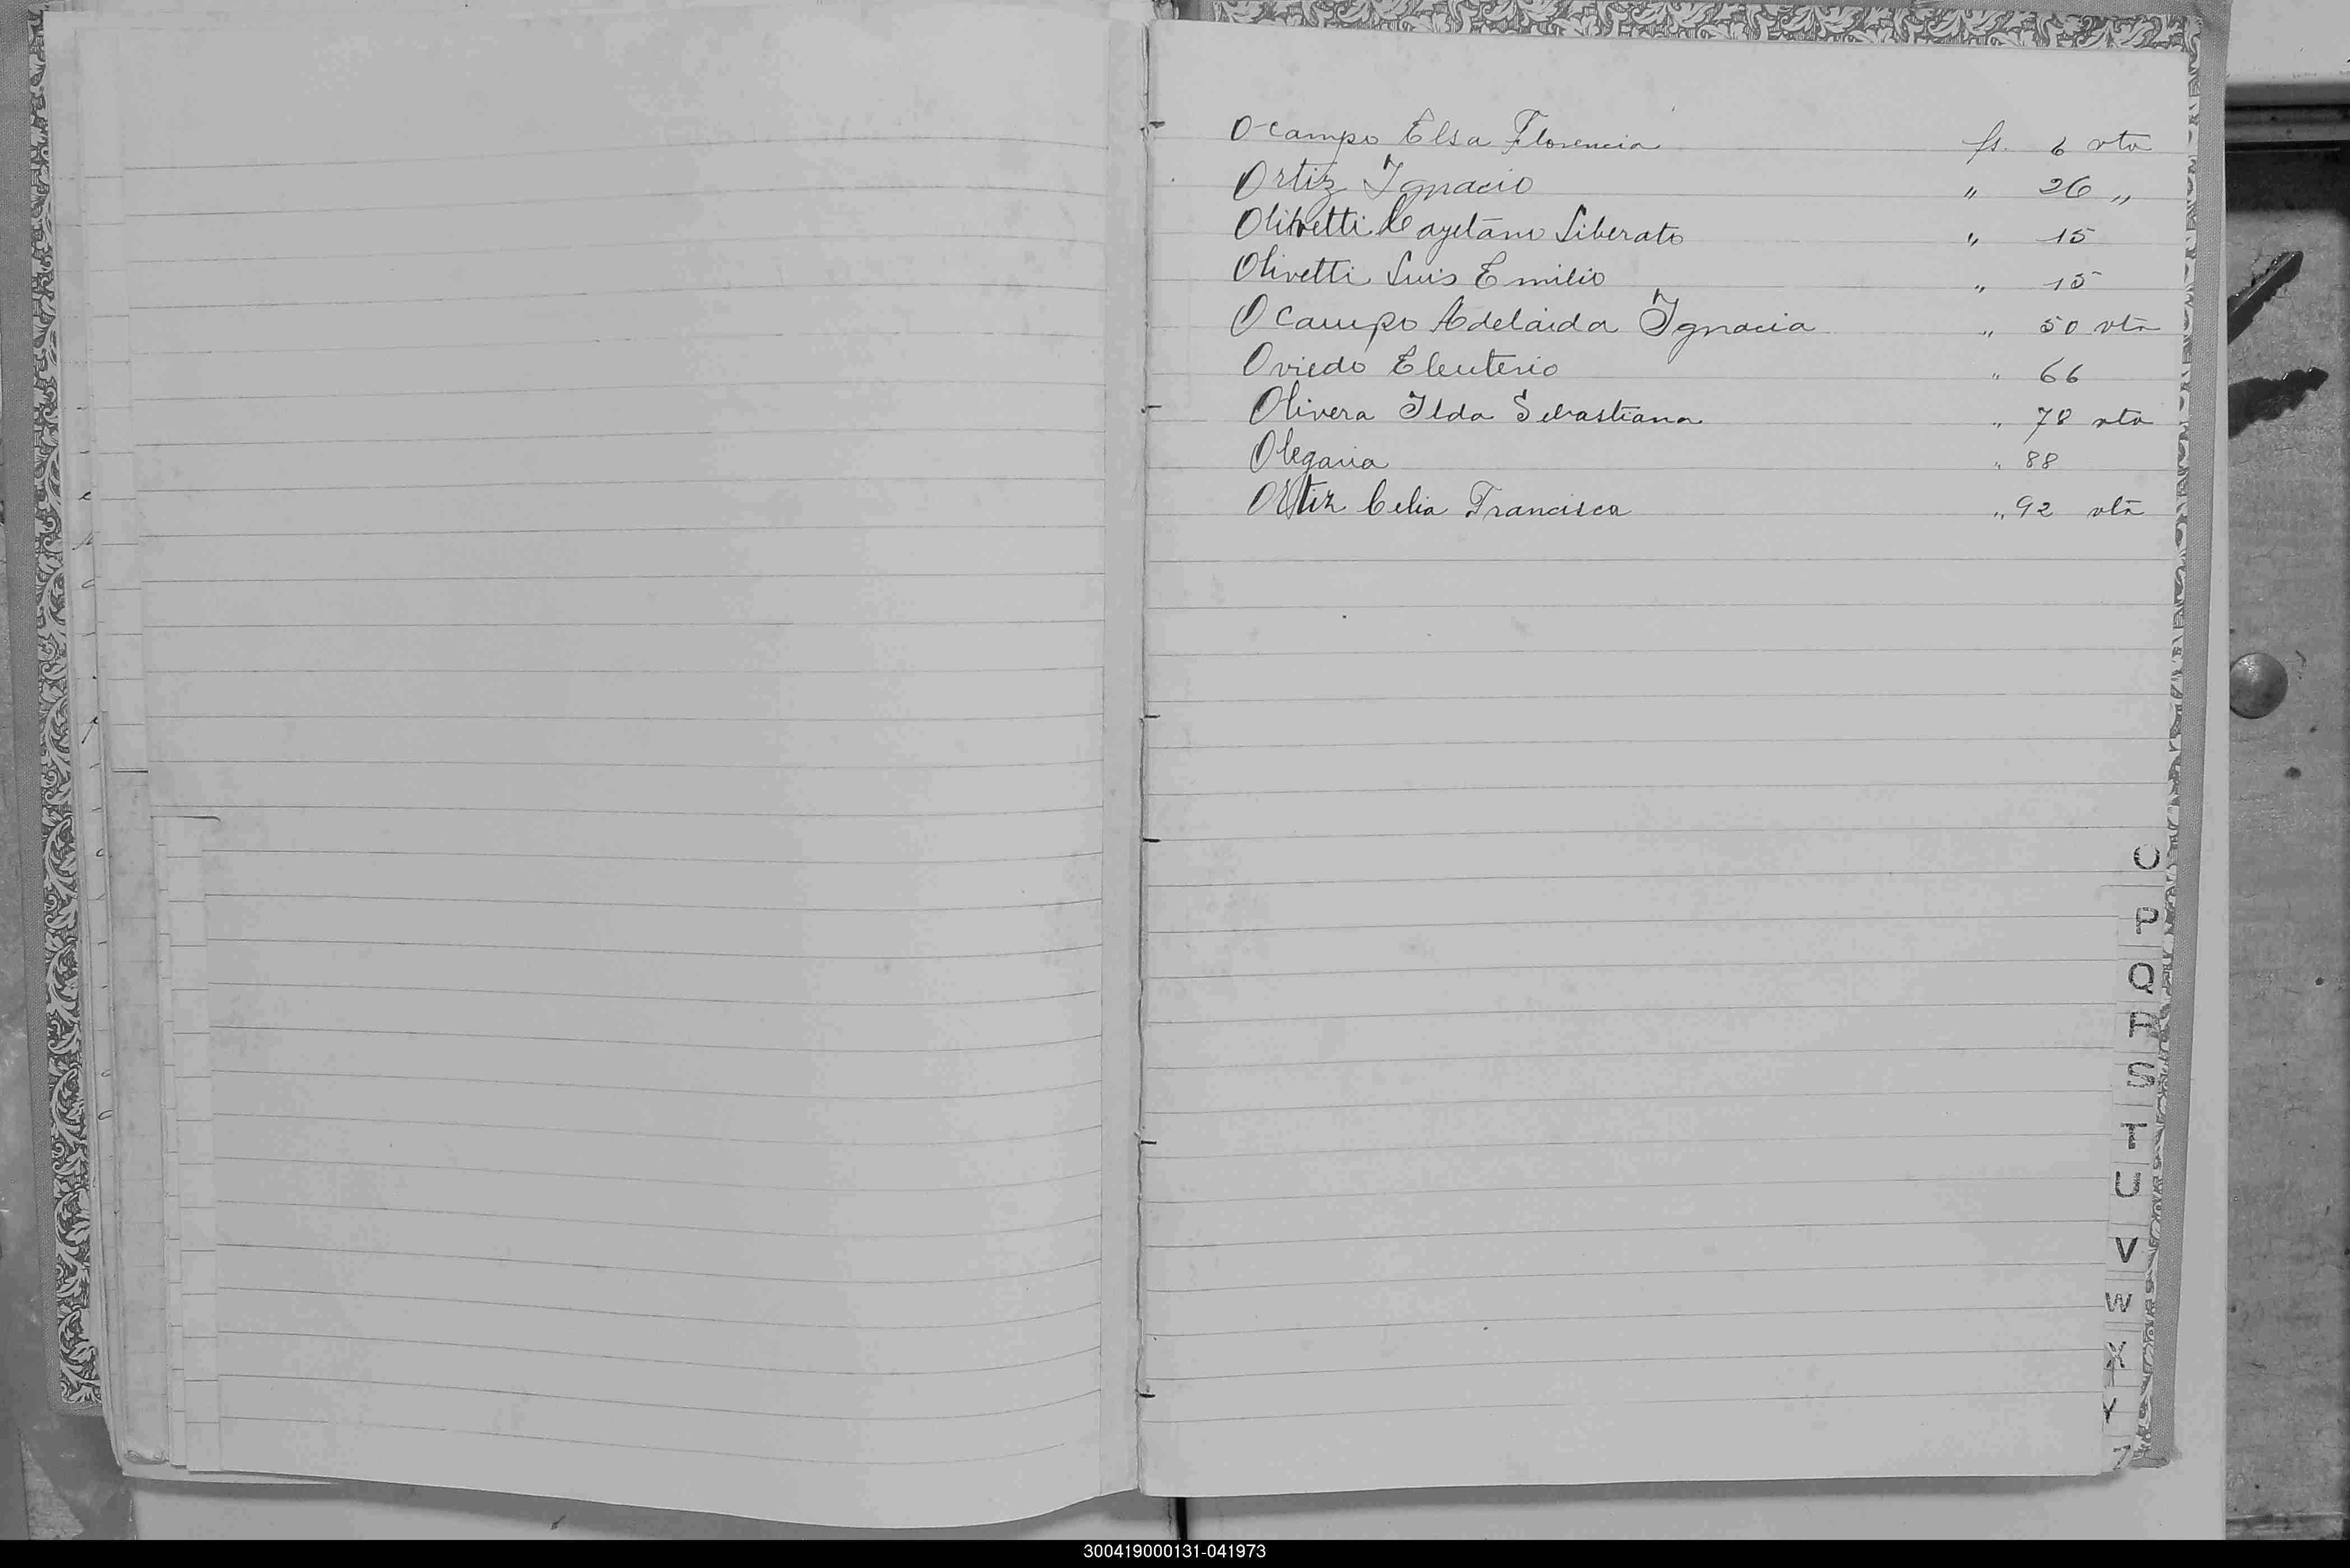 Ocampo Elsa Florencia fs. 6 vta
Ortiz Ignacio " 26 "
Olivetti Cayetano Liberato " 15
Olivetti Luis Emilio " 15
Ocampo Adelaida Ignacia " 50 vta
Oviedo Eleuterio " 66
Olivera Ilda Sebastiana " 78 vta
Olegaria " 88
Ortiz Celia Francisca " 92 vta
O
P
Q
R
S
T
U
V
W
X
Y
Z
300419000131-041973